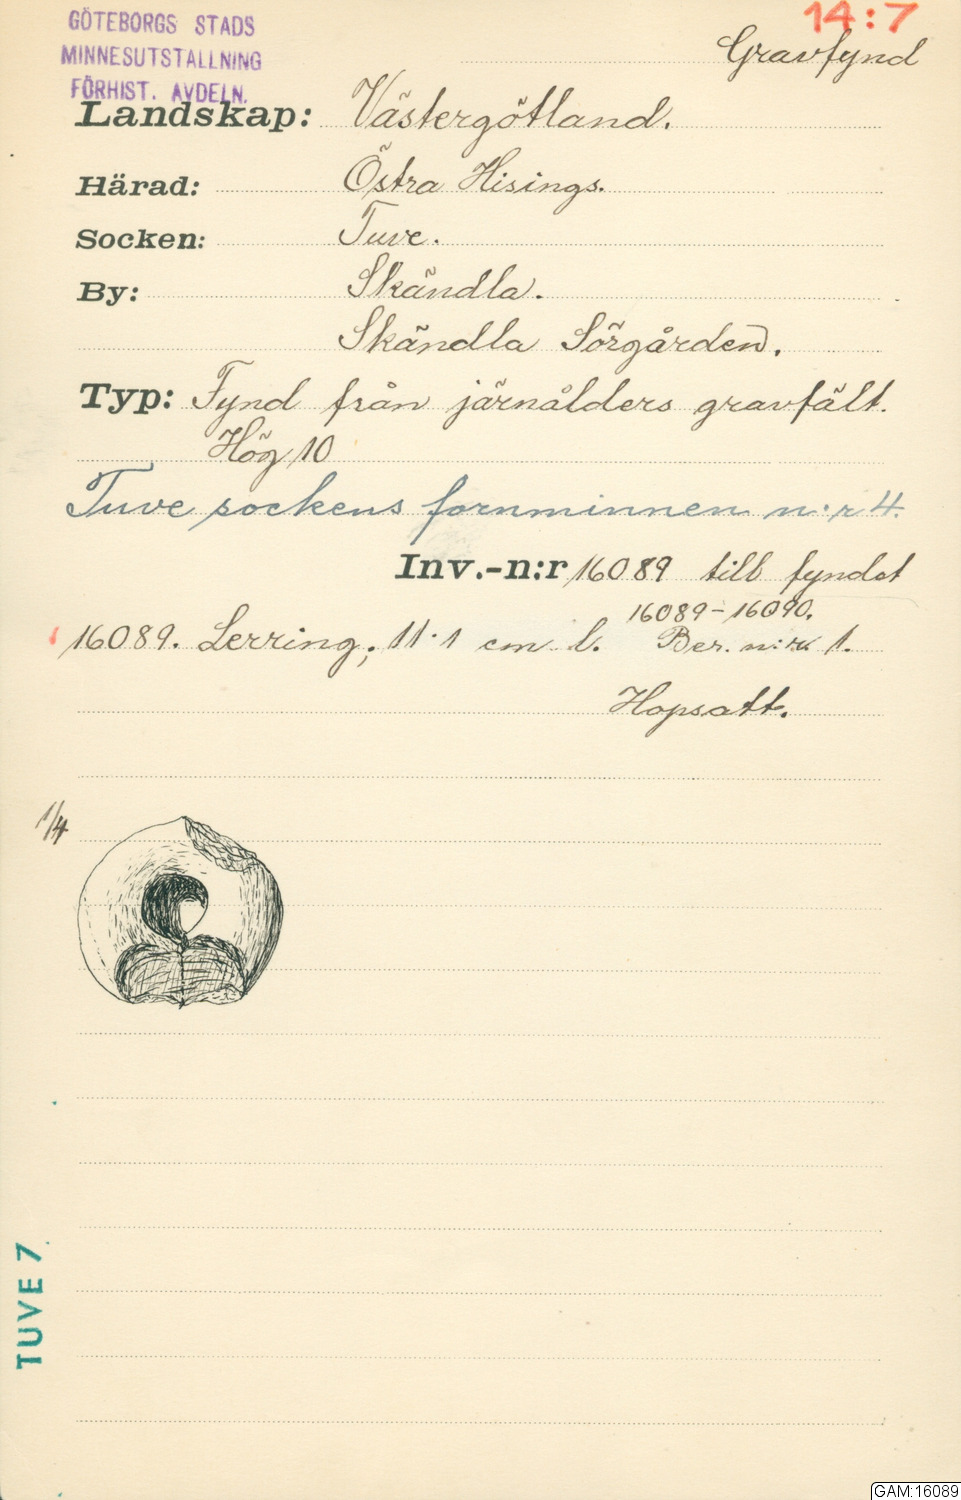 GÖTEBORGS STADS
MINNESUTSTALLNING
FÖRHIST. AVDELN.
14:7
Gravfynd
Landskap: Västergötland.
Härad: Östra Hisings.
Socken: Tuve.
By: Skändla.
Skändla Sörgården.
Typ: Fynd från järnålders gravfält.
Hög 10
Tuve sockens fornminnen n:r 4.
Inv.-n:r 16089 till fyndet
16089-16090.
16089. Lerring; 11·1 cm l. Ber. n:r 1.
Hopsatt.
1/4
TUVE 7.
GAM:16089